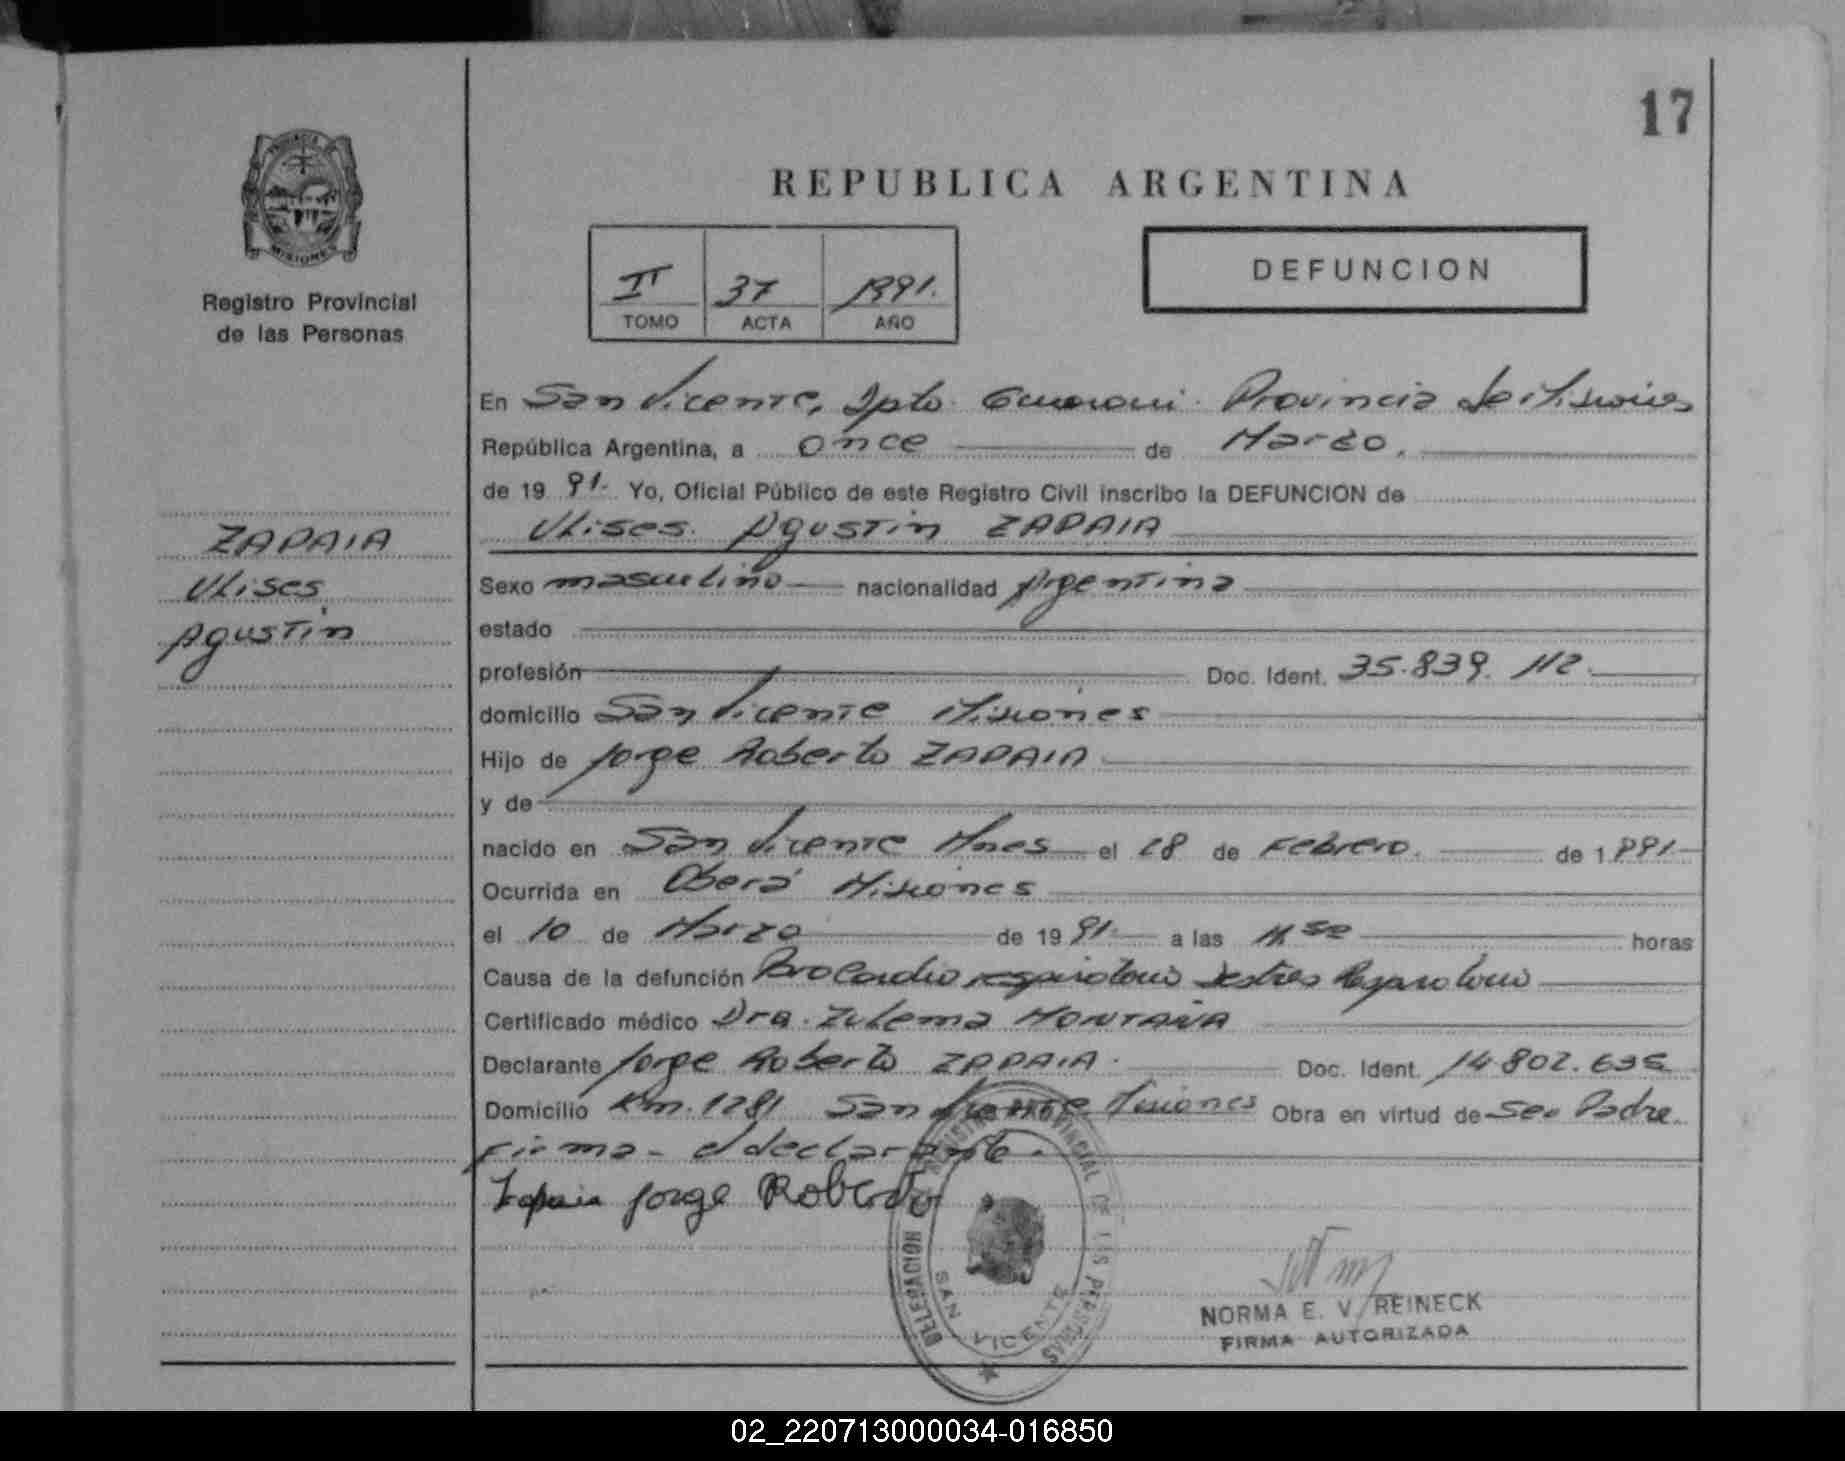 17
PROVINCIA
MISIONES
Registro Provincial
de las Personas
REPUBLICA ARGENTINA
II 37 1991.
TOMO ACTA AÑO
DEFUNCION
En San Vicente, Dpto. Guarani. Provincia de Misiones
República Argentina, a once de Marzo.
de 19 91. Yo, Oficial Público de este Registro Civil inscribo la DEFUNCION de
Ulises Agustin ZAPAIA
ZAPAIA
Ulises
Agustin
Sexo masculino nacionalidad Argentina
estado
profesión Doc. Ident. 35.839.112.
domicilio San Vicente Misiones
Hijo de Jorge Roberto ZAPAIA
y de
nacido en San Vicente Mnes el 28 de Febrero. de 1991
Ocurrida en Oberá Misiones
el 10 de Marzo de 19 91 a las horas
Causa de la defunción Paro Cardio respiratorio Respiratorio
Certificado médico Dra. Zulema MONTAÑA
Declarante Jorge Roberto ZAPAIA. Doc. Ident. 14.802.635
Domicilio Km. 1281 San Vicente Misiones Obra en virtud de Ser Padre.
Firma el declarante.
Zapaia Jorge Roberto
DELEGACION REGISTRO PROVINCIAL DE LAS PERSONAS
SAN VICENTE
NORMA E. V. REINECK
FIRMA AUTORIZADA
02_220713000034-016850